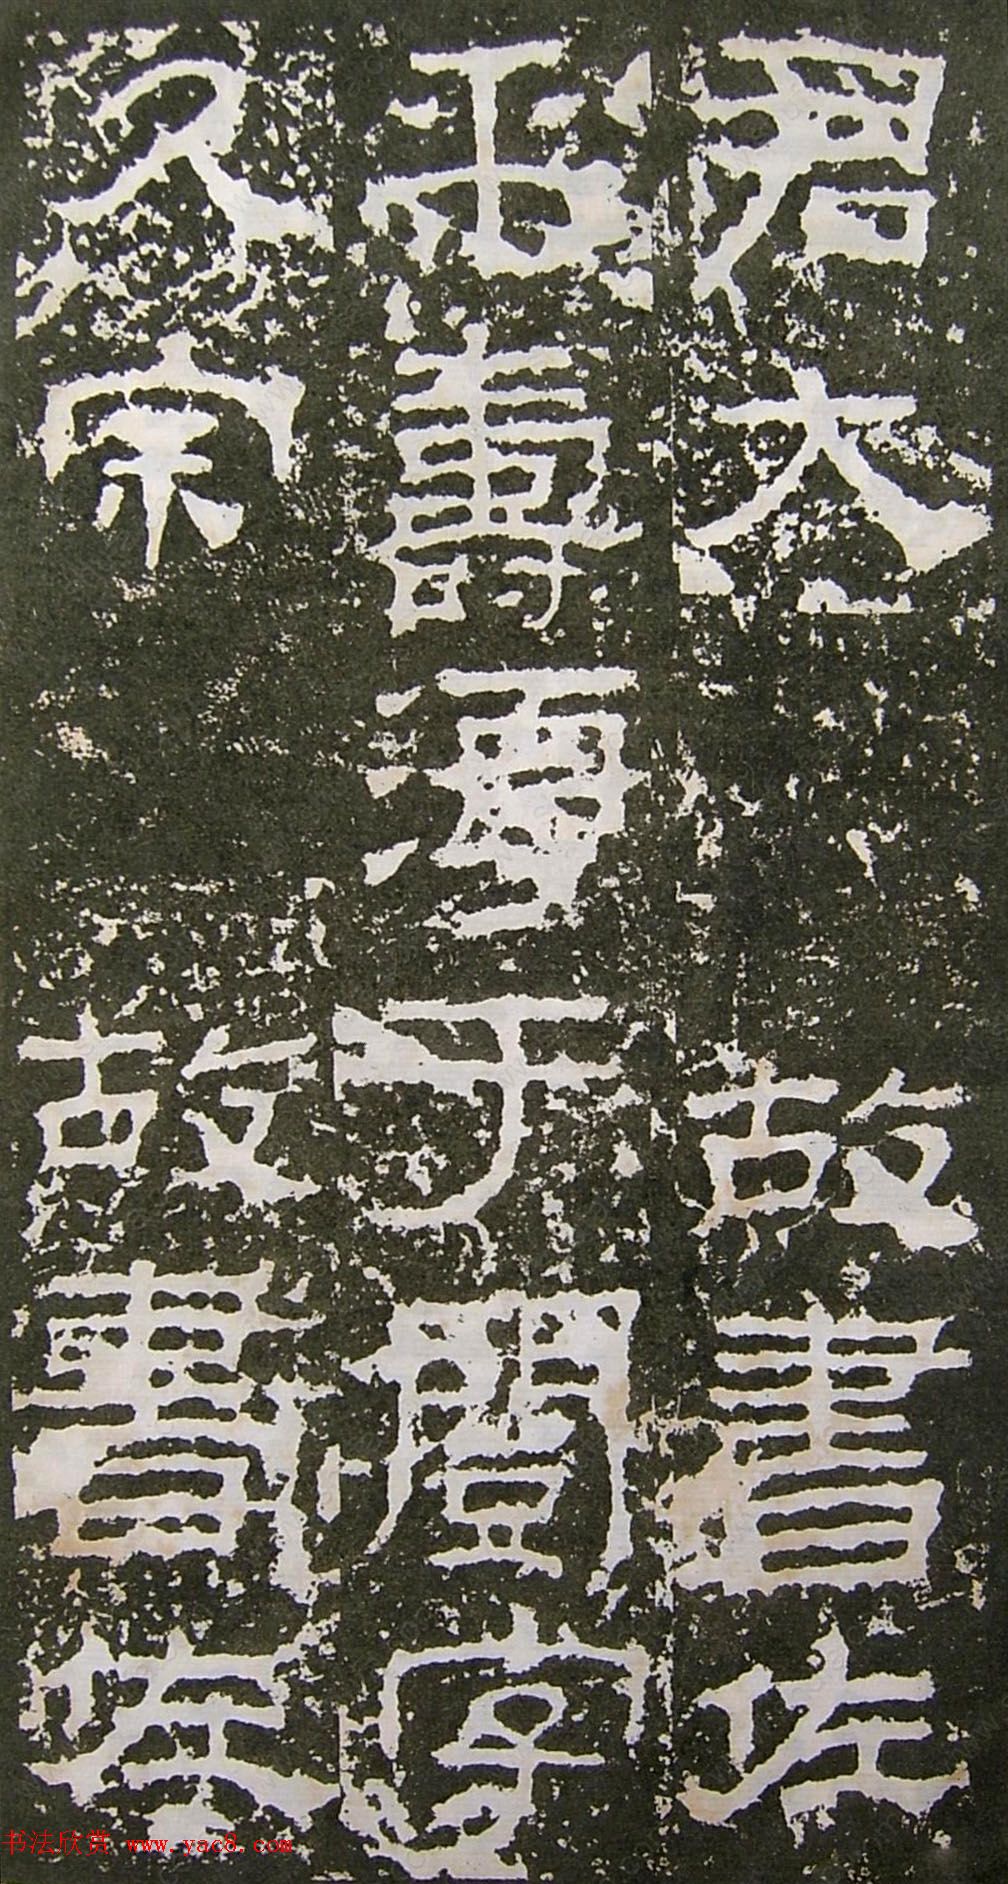 君大故書佐
平壽淳于闓字
久宗故書佐
书法欣赏 www.yac8.com